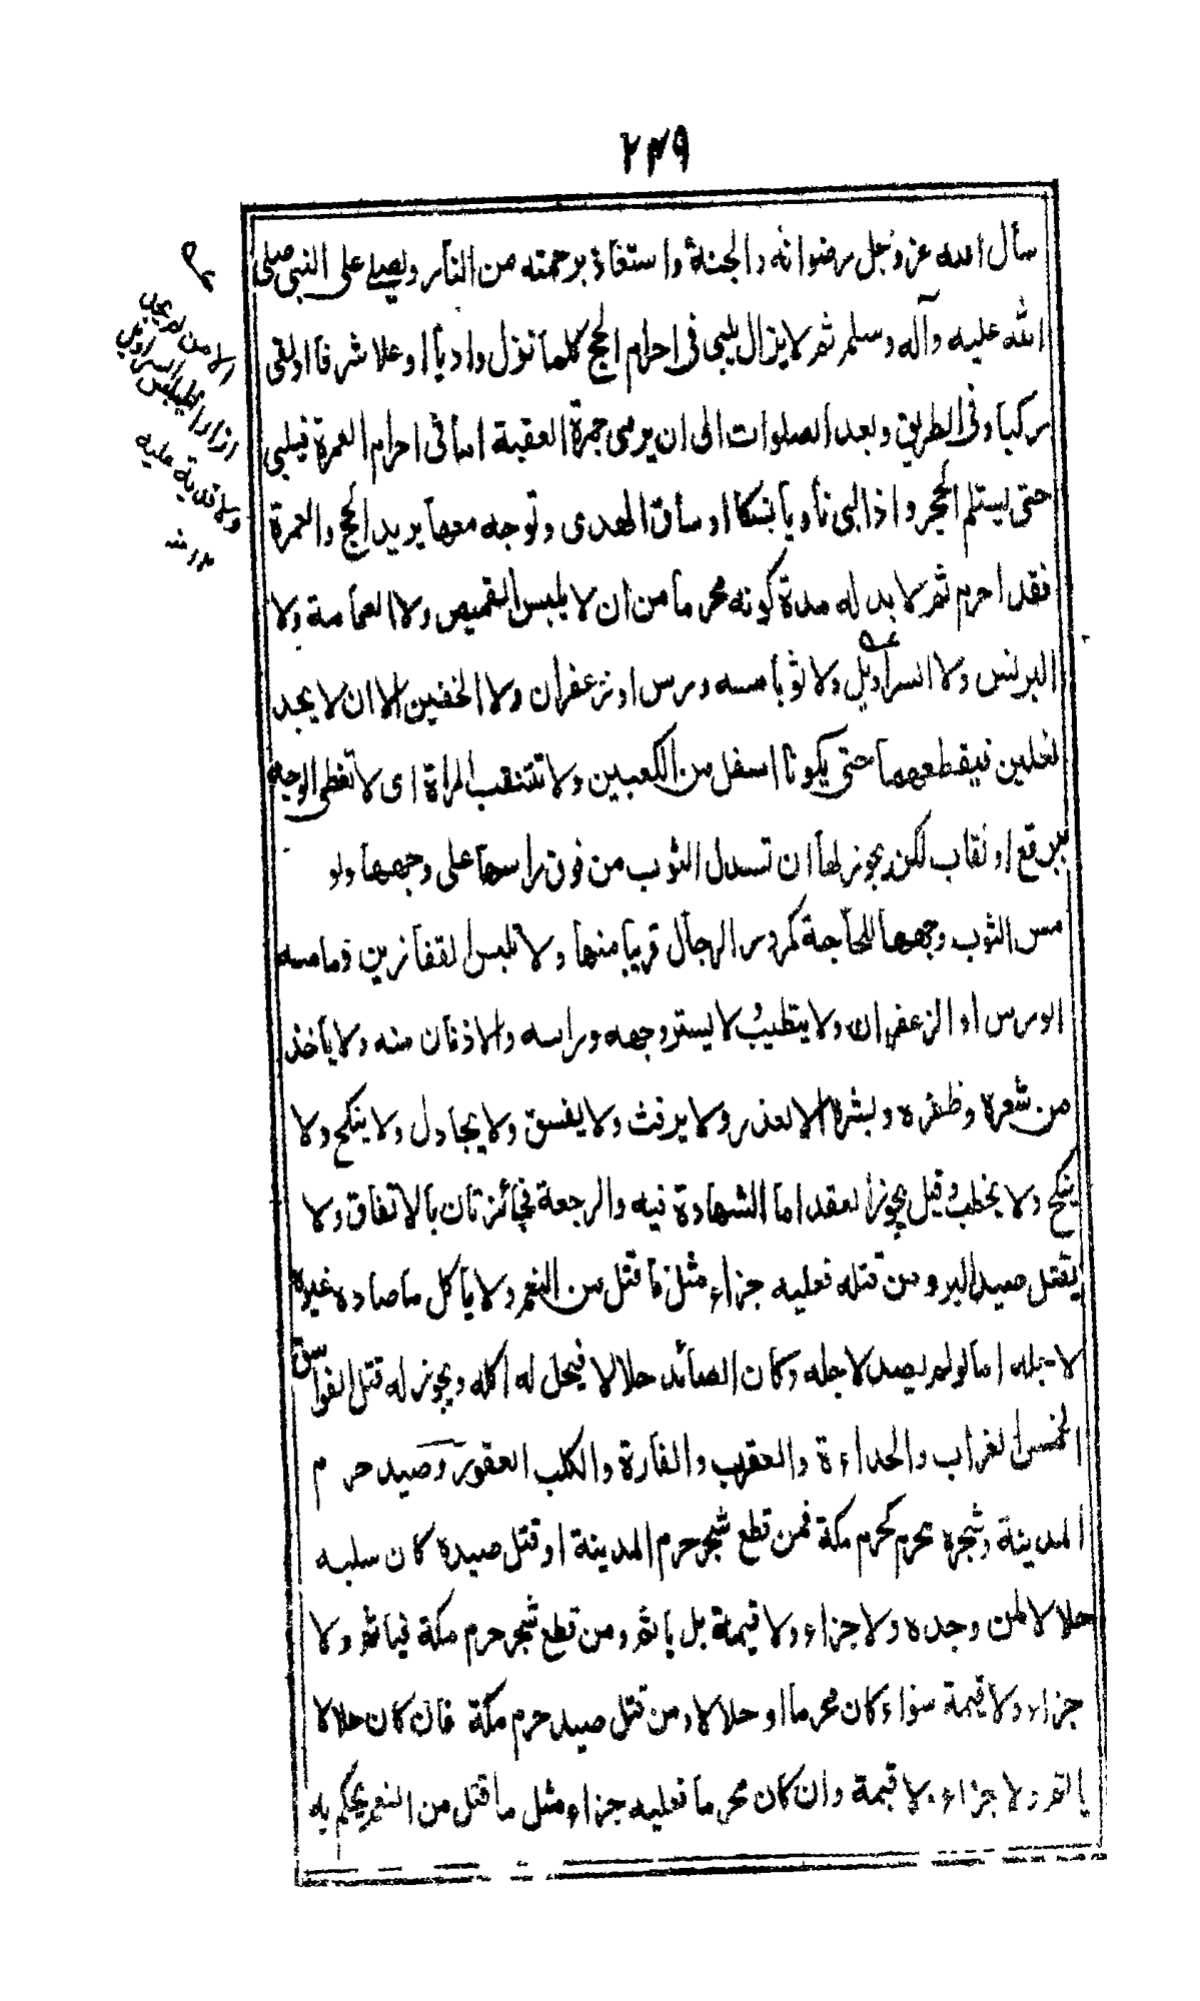 ٢٤٩
سأل الله عز وجل رضوانه والجنة واستعاذ برحمته من النار ويصلے على النبى صلى
الله عليه وآله وسلم ثم لا يزال يلبى فى احرام الحج كلما نزل واديا او علا شرفا اولقى
ركبا وفى الطريق وبعد الصلوات الى ان يرمى جمرة العقبة اما فى احرام العمرة فيلبى
حتى يستلم الحجر واذا لبى ناويا نسكا او ساق الهدى وتوجه معها يريد الحج والعمرة
فقد احرم ثم لا بد له مدة كونه محرما من ان لا يلبس القميص ولا العمامة ولا
البرنس ولا السراويل ولا ثوبا مسه ورس او زعفران ولا الخفين الا ان لا يجد
نعلين فيقطعهما حتى يكونا اسفل من الكعبين ولا تتنقب المراة اى لا تغطى الوجه
ببرقع او نقاب لكن يجوز لها ان تسدل الثوب من فوق راسها على وجهها ولو
مس الثوب وجهها للحاجة كمرور الرجال قريبا منها ولا تلبس القفازين وما مسه
الورس او الزعفران ولا يتطيب ولا يستر وجهه وراسه والاذنان منه ولا يأخذ
من شعره وظفره وبشره الا لعذر ولا يرفث ولا يفسق ولا يجادل ولا ينكح ولا
ينكح ولا يخطب وقيل يجوز العقد اما الشهادة فيه والرجعة فجائزتان بالاتفاق ولا
يقتل صيد البر ومن قتله فعليه جزاء مثل ما قتل من النعم ولا يأكل ما صاده غيره
لاجله اما لو لم يصد لاجله وكان الصائد حلالا فيحل له اكله ويجوز له قتل الفواسق
الخمس الغراب والحداءة والعقرب والفارة والكلب العقور وصيد حرم
المدينة وشجره يحرم كحرم مكة فمن قطع شجر حرم المدينة او قتل صيده كان سلبه
حلالا لمن وجده ولا جزاء ولا قيمة بل ياثم ومن قطع شجر حرم مكة فياثم ولا
جزاء ولا قيمة سواء كان محرما او حلالا ومن قتل صيد حرم مكة فان كان حلالا
ياثم ولا جزاء ولا قيمة وان كان محرما فعليه جزاء مثل ما قتل من النعم يحكم به
الا من لم يجد
ازارا فليلبس السراويل
ولا فدية عليه